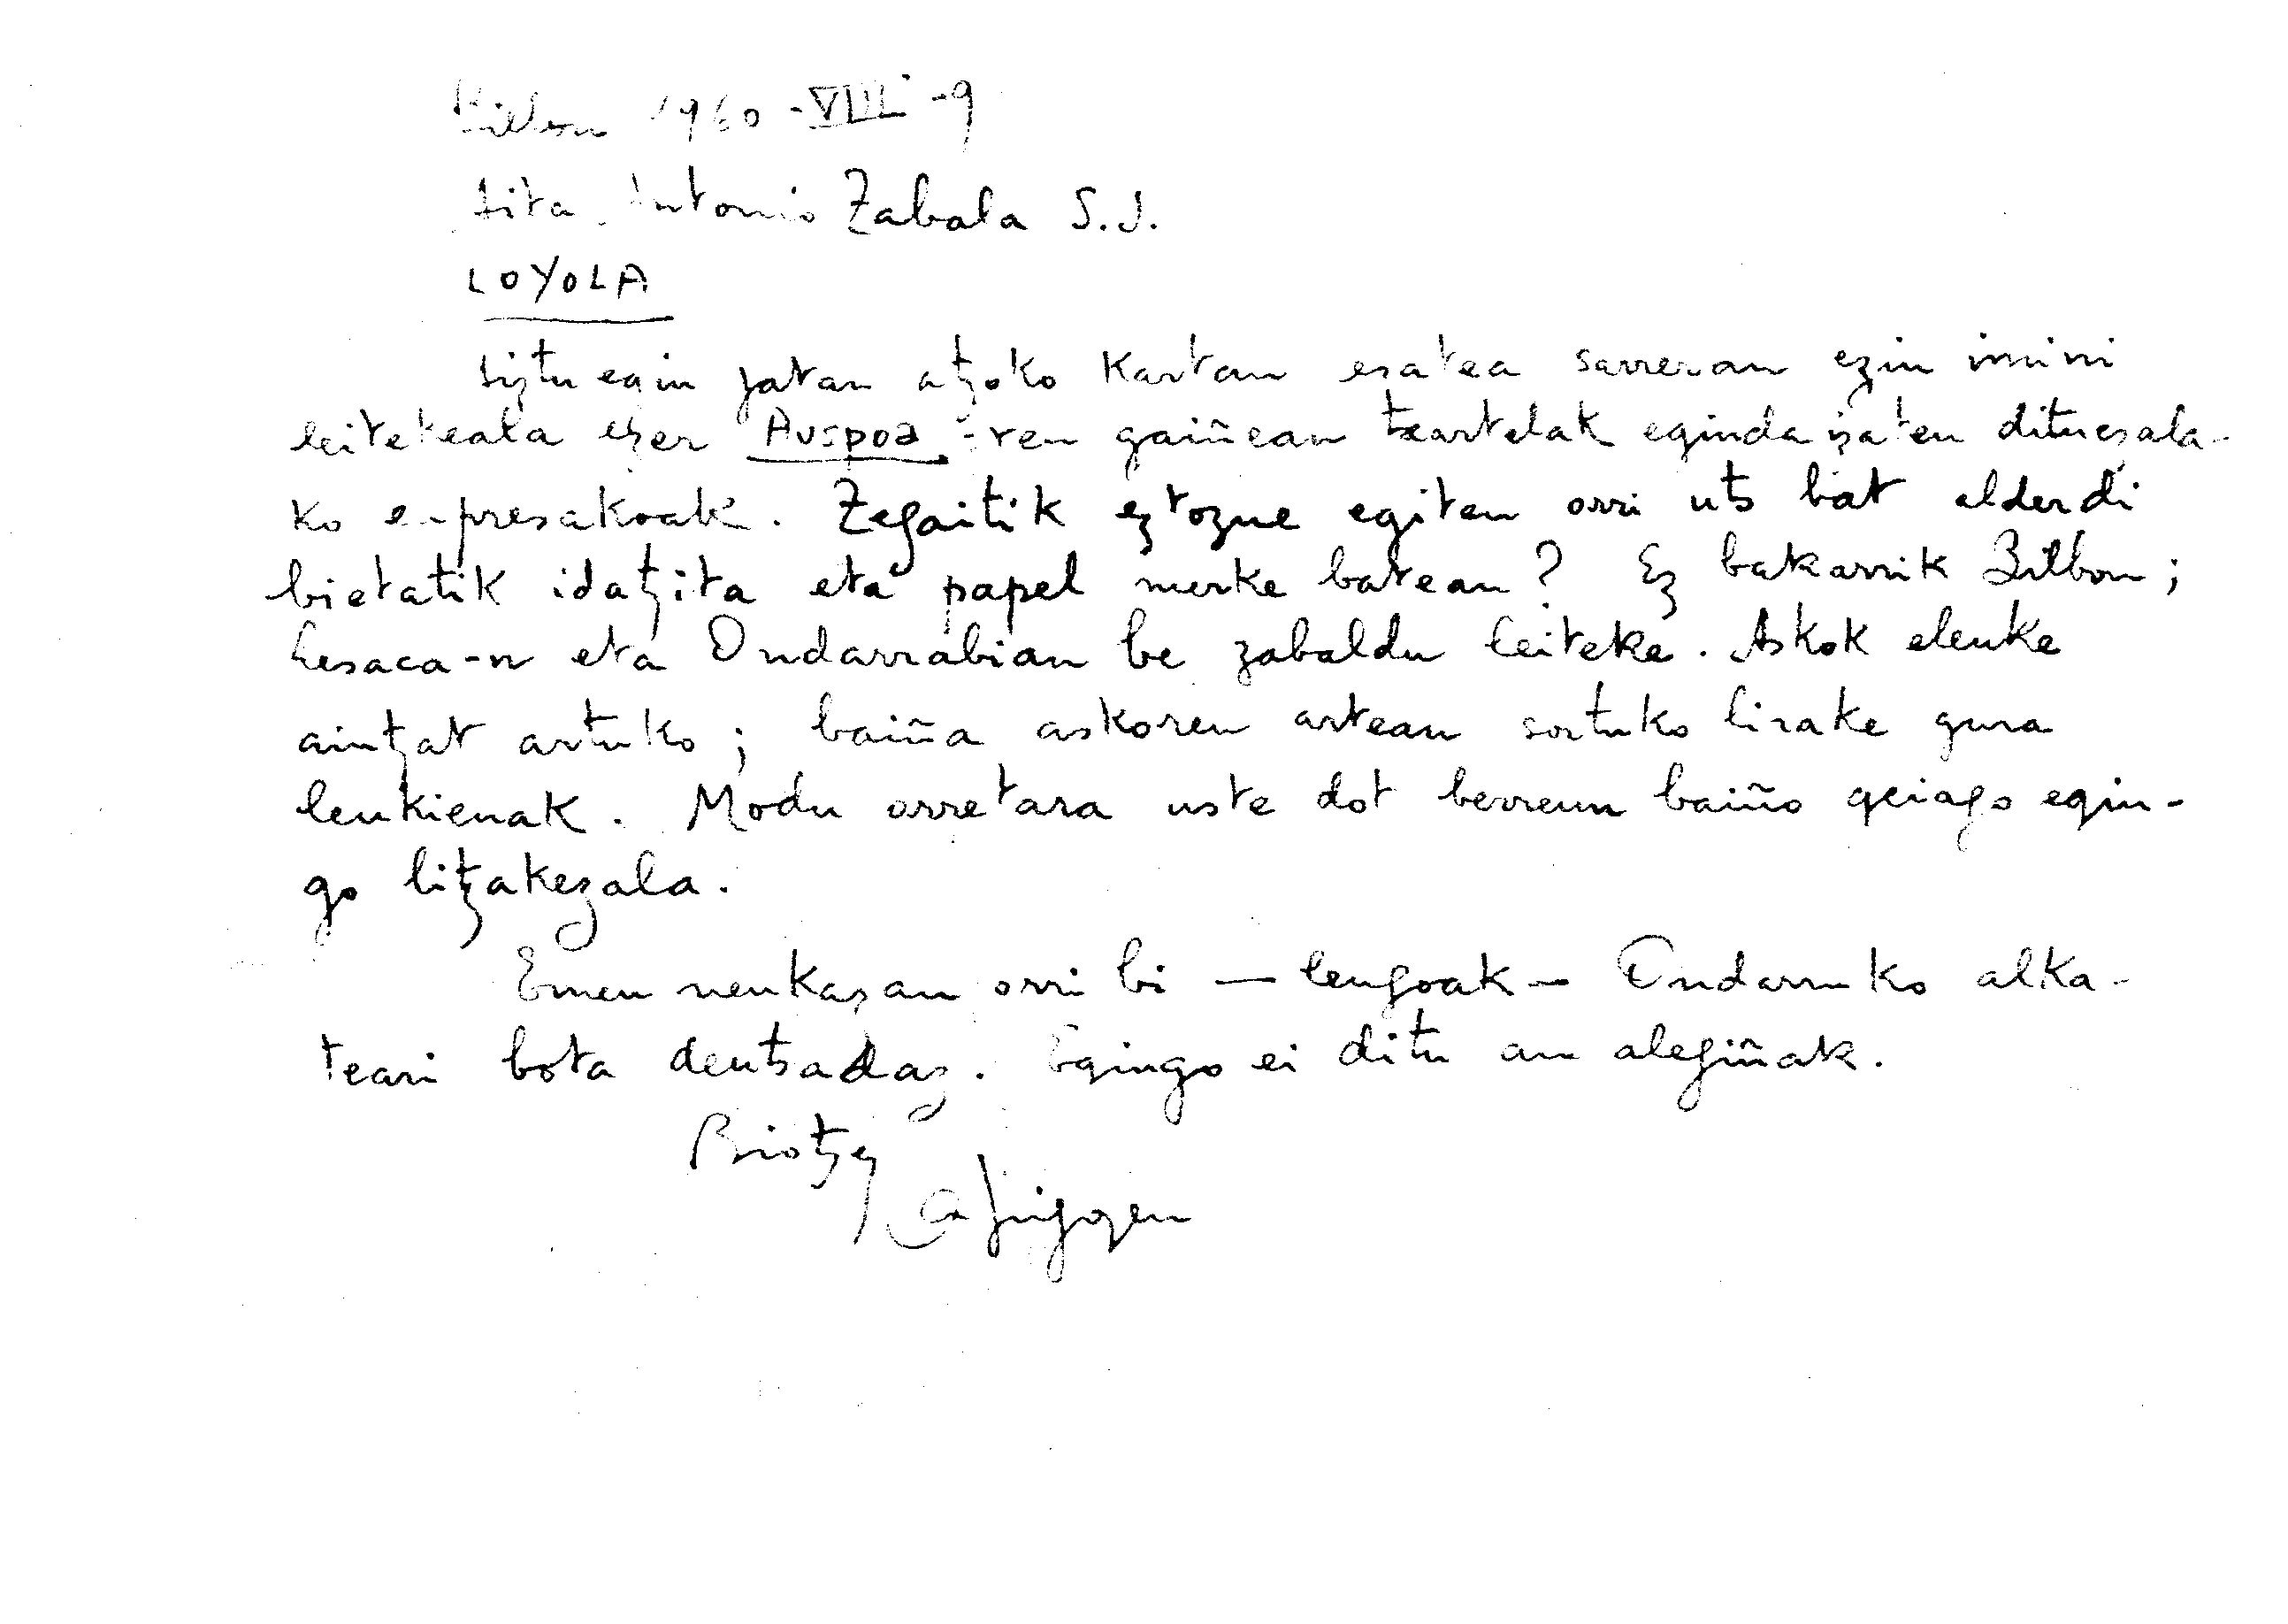 Bilbon 1960-VIII-9
Aita Antonio Zabala S.J.
LOYOLA
aiztu egin jatan atzoko kartan esatea sarreran ezin imini
leitekeala ezer Auspoa-ren gaiñean txartelak eginda izaten dituezala-
ko enpresakoak. Zegaitik eztozue egiten orri uts bat alderdi
bietatik idatzita eta papel merke batean? Ez bakarrik Bilbon;
Lesaca-n eta Ondarrabian be zabaldu leiteke. Askok eleuke
aintzat artuko; baiña askoren artean sortuko lirake gura
leukienak. Modu orretara uste dot berreun baiño geiago egin-
go litzakezala.
Emen neukazan orri bi — lengoak — Ondarruko alka-
teari bota deutsadaz. Egingo ei ditu an alegiñak.
Biotzez